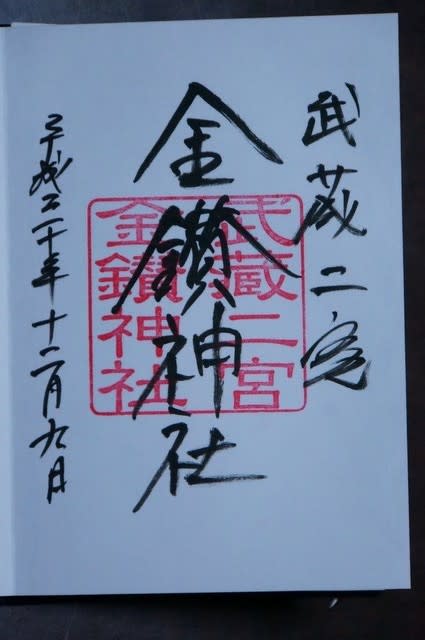 武蔵二宮
金鑚神社
武蔵二宮
金鑚神社
平成二十年十二月九日